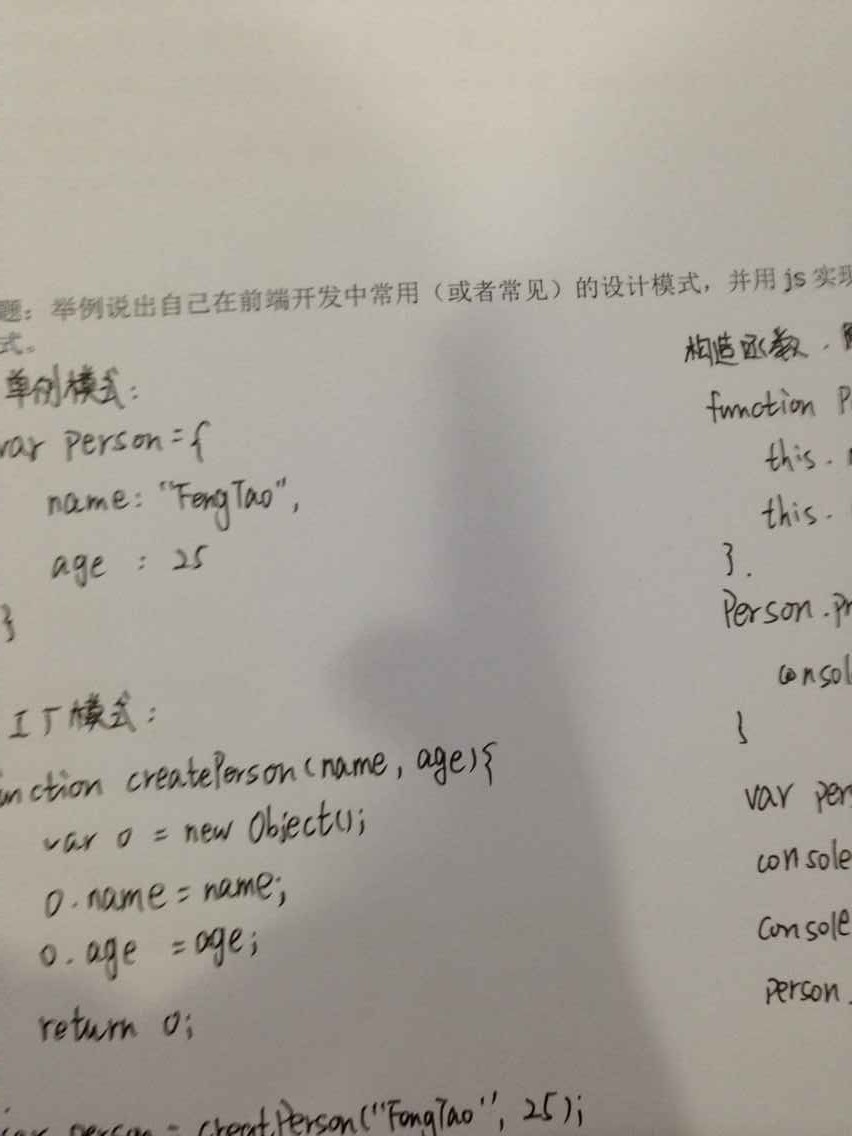 题：举例说出自己在前端开发中常用（或者常见）的设计模式，并用 js 实现
式。
单例模式：
var person={
name: "FengTao",
age : 25
}
工厂模式：
unction createPerson(name, age){
var o = new Object();
o.name = name;
o.age = age;
return o;
var person = creatPerson("FengTao", 25);
构造函数.
function P
this.
this.
}.
Person.pr
consol
}
var per
console
console
person.